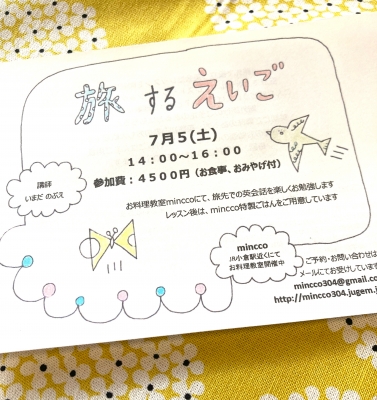 旅するえいご
7月5(土)
14:00～16:00
参加費：4500円（お食事、おみやげ付）
講師
いまだ のぶえ
お料理教室minccoにて、旅先での英会話を楽しくお勉強します
レッスン後は、mincco特製ごはんをご用意しています
mincco
JR小倉駅近くにて
お料理教室開催中
ご予約・お問い合わせは
メールにてお受けしています
mincco304@gmail.co
http://mincco304.jugem.j